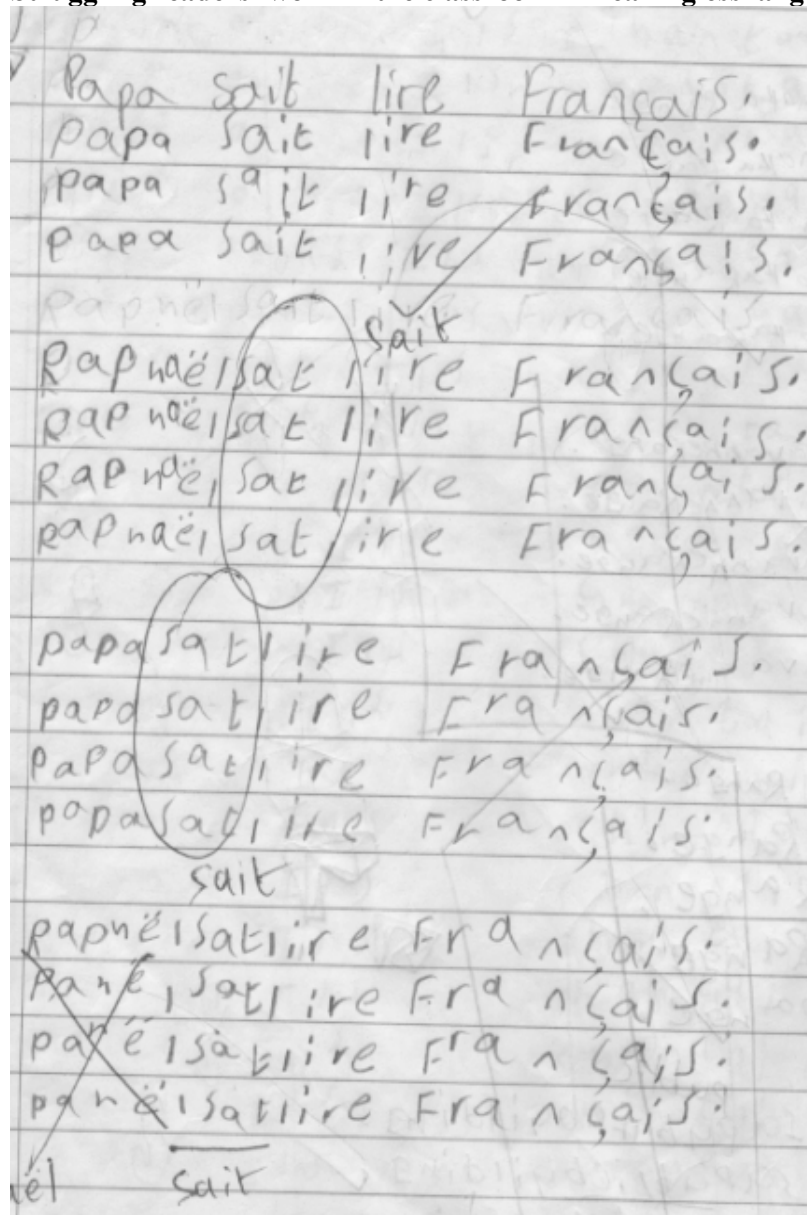 Papa sait lire Français.
papa sait lire Français.
papa sait lire français.
papa sait lire Français.
Papnël sait lire Français.
sait
Rapnaël sat lire Français.
Rapnaël sat lire Français.
Rapnaël sat lire Français.
Rapnaël sat lire Français.
papa sat lire Français.
papa sat lire Français.
papa sat lire Français.
papa sat lire Français.
sait
papnëlsatlire Français.
panëlsatlire Français.
panëlsatlire Français.
panëlsatlire Français.
ël sait